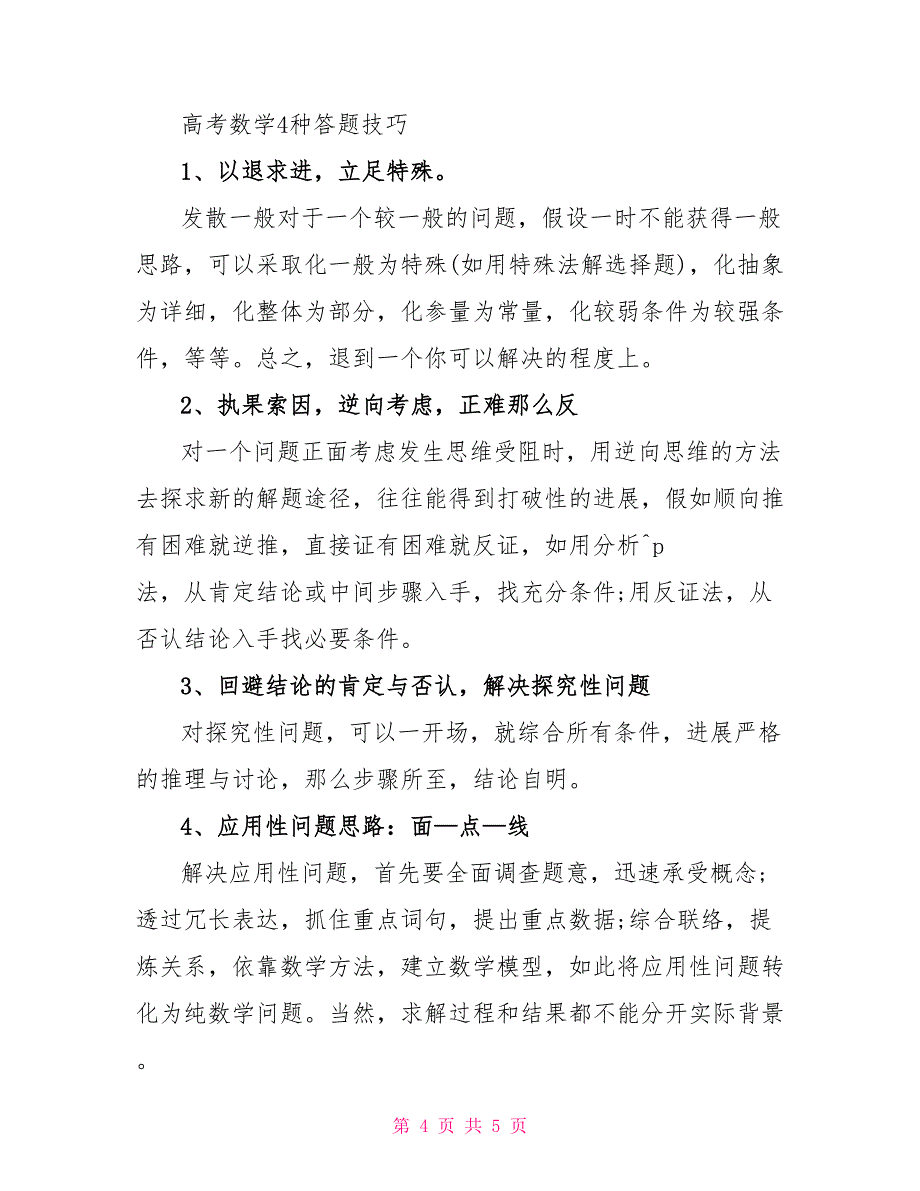 高考数学4种答题技巧
1、以退求进，立足特殊。
发散一般对于一个较一般的问题，假设一时不能获得一般
思路，可以采取化一般为特殊(如用特殊法解选择题)，化抽象
为详细，化整体为部分，化参量为常量，化较弱条件为较强条
件，等等。总之，退到一个你可以解决的程度上。
2、执果索因，逆向考虑，正难那么反
对一个问题正面考虑发生思维受阻时，用逆向思维的方法
去探求新的解题途径，往往能得到打破性的进展，假如顺向推
有困难就逆推，直接证有困难就反证，如用分析^p
法，从肯定结论或中间步骤入手，找充分条件;用反证法，从
否认结论入手找必要条件。
3、回避结论的肯定与否认，解决探究性问题
对探究性问题，可以一开场，就综合所有条件，进展严格
的推理与讨论，那么步骤所至，结论自明。
4、应用性问题思路：面—点—线
解决应用性问题，首先要全面调查题意，迅速承受概念;
透过冗长表达，抓住重点词句，提出重点数据;综合联络，提
炼关系，依靠数学方法，建立数学模型，如此将应用性问题转
化为纯数学问题。当然，求解过程和结果都不能分开实际背景
。
第 4 页 共 5 页